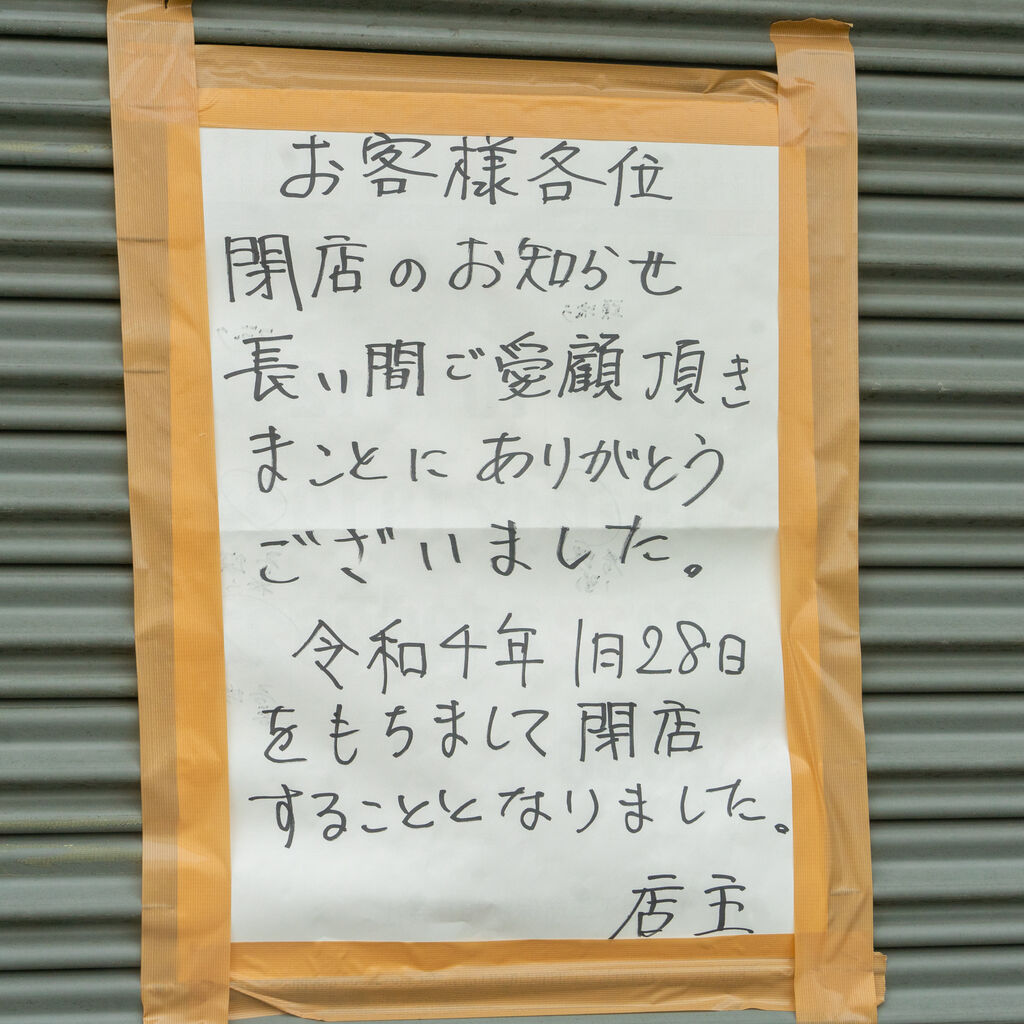 お客様各位
閉店のお知らせ
長い間ご愛顧頂き
まことにありがとう
ございました。
令和4年1月28日
をもちまして閉店
することとなりました。
店主